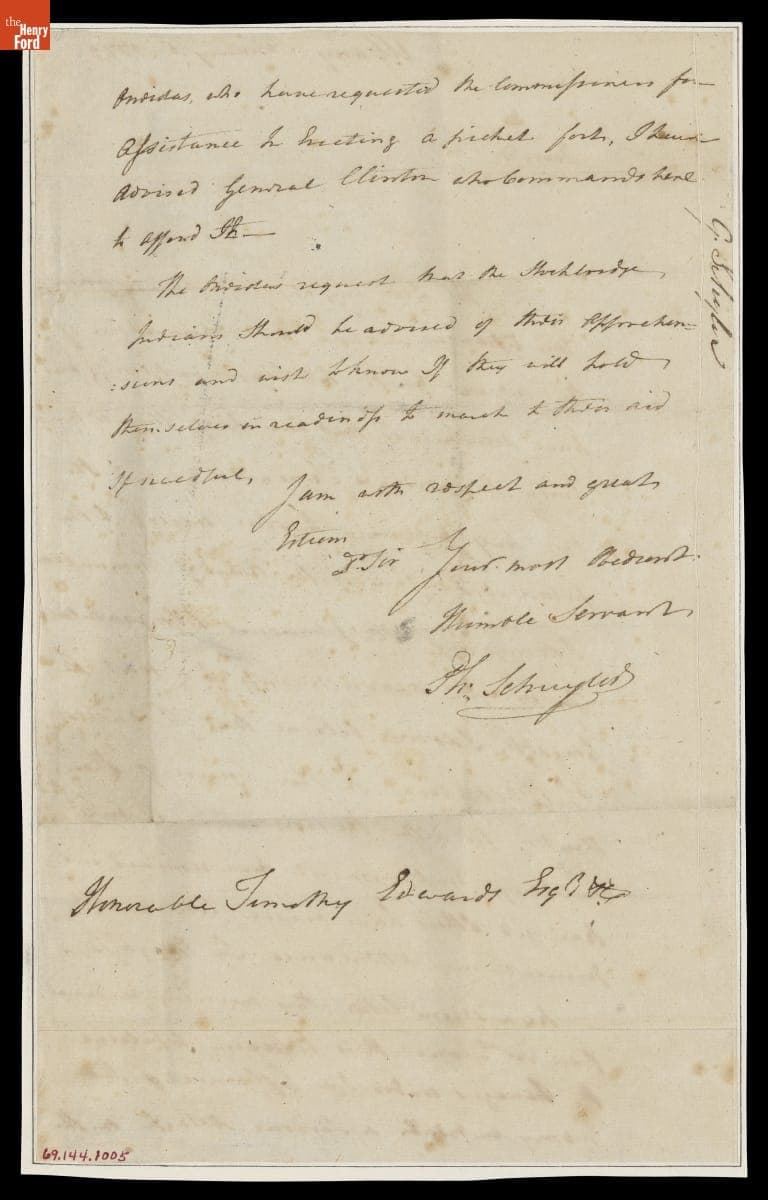 the
Henry
Ford
Oneidas, who have requested the Commissioners for
Assistance In Erecting a picket fort, I have
advised General Clinton who Commands here
to afford It—
The Oneidas request that the Stockbridge
Indians Should be advised of their Apprehen=
:sions and wish to know If they will hold
themselves in readiness to march to their aid
If needful,
I am with respect and great
Esteem
Dr Sir Your most Obedient
Humble Servant
Ph: Schuyler
G. Schuyler
Honorable Timothy Edwards Esqr &c
69.144.1005